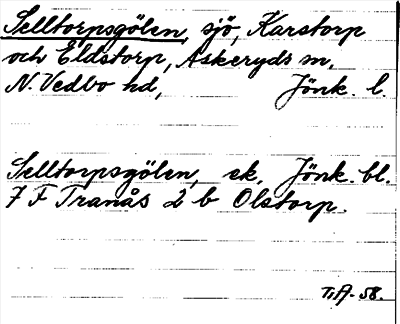 Selltorpsgölen, sjö, Karstorp
och Eldstorp, Askeryds sn,
N. Vedbo hd, Jönk. l.
Selltorpsgölen, ek, Jönk. bl.
7 F Tranås 2 b Olstorp.
T.A. 58.